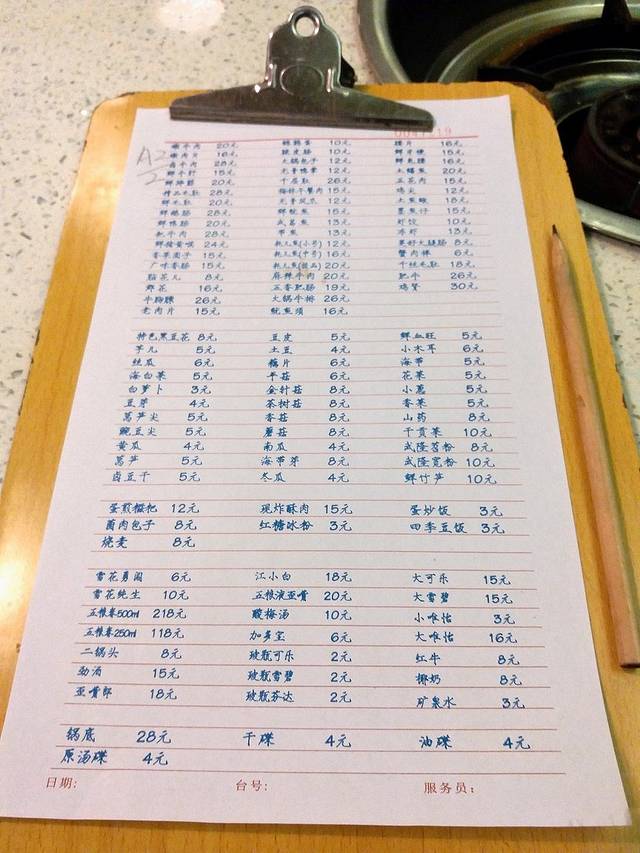 A2
2
嫩牛肉 20元 鹌鹑蛋 10元 腰片 16元
嫩肉片 16元 脆皮肠 10元 鲜牙梗 15元
卤牛肉 28元 火锅包子 12元 鲜鱼腰 16元
鲜牛肝 15元 无骨鸭掌 12元 土鳝鱼 20元
鲜郡肝 20元 千层肚 26元 五花肉 15元
精品毛肚 28元 梅林午餐肉 15元 鸡尖 12元
鲜毛肚 20元 无骨凤爪 12元 土鱼鳅 18元
鲜鹅肠 28元 鲜鱿鱼 15元 墨鱼仔 15元
鲜鸭肠 20元 武昌鱼 13元 虾饺 10元
牛肉 28元 带鱼 13元 冻虾 13元
鲜猪黄喉 24元 耗儿鱼(小号) 12元 美好火腿肠 8元
香菜圆子 15元 耗儿鱼(中号) 16元 蟹肉棒 6元
广味香肠 15元 耗儿鱼(极品) 20元 千丝毛肚 18元
脑花儿 8元 麻辣牛肉 20元 肥牛 26元
郡花 16元 五香肥肠 19元 鸡肾 30元
牛胸膘 26元 火锅牛排 26元
老肉片 15元 鱿鱼须 16元
特色黑豆花 8元 豆皮 5元 鲜血旺 5元
芋儿 5元 土豆 4元 小木耳 6元
丝瓜 6元 藕片 6元 海带 5元
海白菜 5元 平菇 6元 花菜 5元
白萝卜 3元 金针菇 8元 小葱 5元
豆芽 4元 茶树菇 8元 香菜 5元
莴笋尖 5元 香菇 8元 山药 8元
豌豆尖 5元 蘑菇 8元 干贡菜 10元
黄瓜 4元 南瓜 4元 武隆苕粉 8元
莴笋 5元 海带芽 8元 武隆宽粉 10元
卤豆干 5元 冬瓜 4元 鲜竹笋 10元
蛋煎糍粑 12元 现炸酥肉 15元 蛋炒饭 3元
菌肉包子 8元 红糖冰粉 3元 四季豆饭 3元
烧麦 8元
雪花勇闯 6元 江小白 18元 大可乐 15元
雪花纯生 10元 五粮液歪嘴 20元 大雪碧 15元
五粮春500ml 218元 酸梅汤 10元 小唯怡 3元
五粮春250ml 118元 加多宝 6元 大唯怡 16元
二锅头 8元 玻瓶可乐 2元 红牛 8元
劲酒 15元 玻瓶雪碧 2元 椰奶 8元
歪嘴郎 18元 玻瓶芬达 2元 矿泉水 3元
锅底 28元 干碟 4元 油碟 4元
原汤碟 4元
日期: 台号: 服务员: